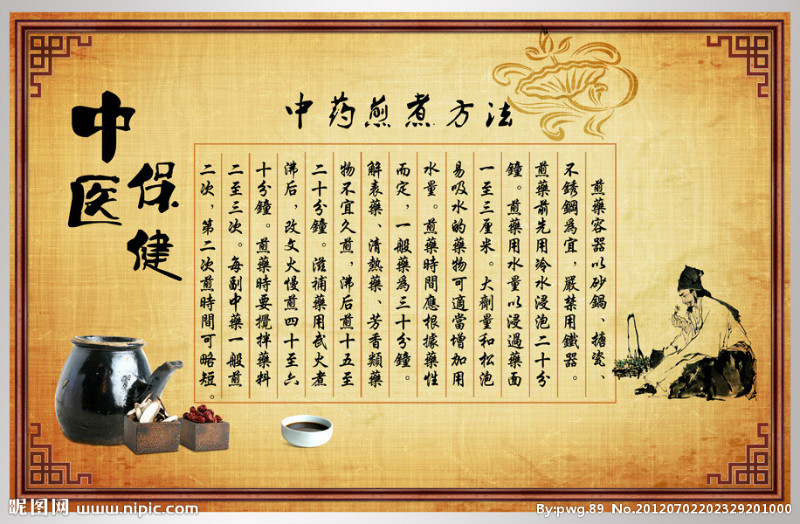 中医
保健
中药煎煮方法
煎藥容器以砂鍋、搪瓷、
不銹鋼為宜，嚴禁用鐵器。
煎藥前先用冷水浸泡二十分
鐘。煎藥用水量以浸過藥面
一至三厘米。大劑量和松泡
易吸水的藥物可適當增加用
水量。煎藥時間應根據藥性
而定，一般藥為三十分鐘。
解表藥、清熱藥、芳香類藥
物不宜久煎，沸后煎十五至
二十分鐘。滋補藥用武火煮
沸后，改文火慢煎四十至六
十分鐘。煎藥時要攪拌藥料
二至三次。每副中藥一般煎
二次，第二次煎時間可略短。
昵图网 www.nipic.com
By:pwg.89 No.20120702202329201000